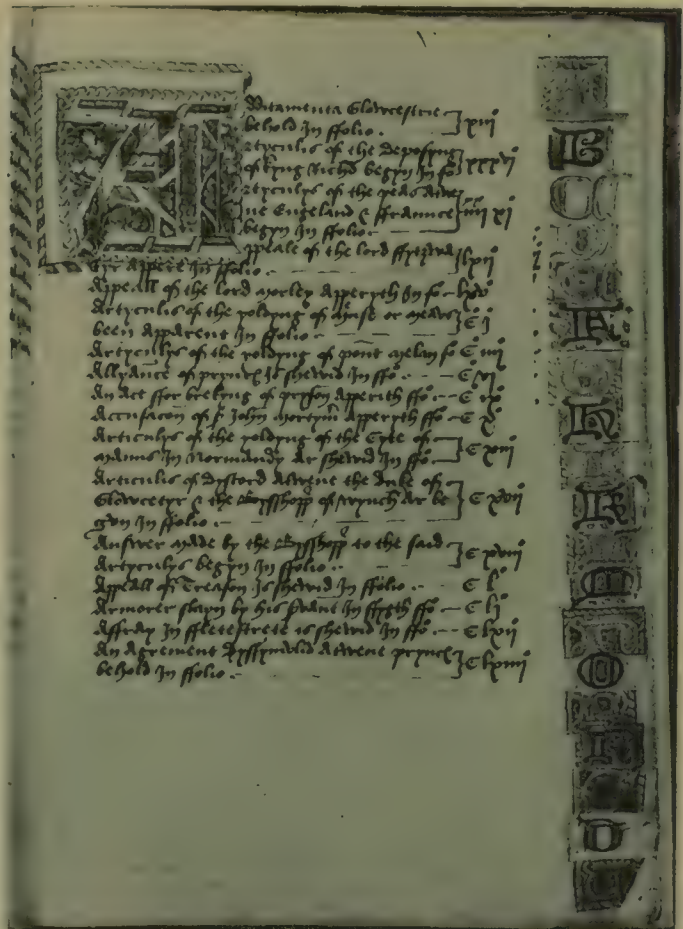 A
dditamenta Glowcestrie
behold In ffolio . xiiiº
rtyculis of the deposyng
of kyng Richd begyn in fo xxxviº
rtyculys of the peas atwe
ne Engeland & ffraunce
begyn In ffolio . iiii xiº
ppeale of the lord ffytzwa
tyr appere in ffolio . lxiiº
Appeall of the lord morley apperyth In fo lxvº
Artyculis of the yoldyng of or meaws
been apparent In ffolio . C iº
Artyculys of the yoldyng of pont melan fo C iiiiº
Allyance of prync is shewid In ffo C viº
An act ffor brekyng of pryson apperith ffo C ixº
Accusacon of sr John mortym apperyth ffo C xº
Articulys of the yoldyng of the Cyte of
manns In Normandy Ar shewid In ffo C xiiiº
Articulis of dyscord Atwene the duke of
Glowcetyr & the Bysshopp of wynch Ar be
gun In ffolio . C xviiº
Answer made by the Bysshopp to the said
Artyculys begyn In ffolio . C xviiiº
Appeall of Treason Is shewid In ffolio . C lº
Armorer slayn by his svant In ffygth ffo C liº
Affray In ffletestrete is shewid In ffo C lxiiº
An Agrement dyssymylid Atwene prync
behold In ffolio . C lxiiiiº
B
C
F
H
K
O